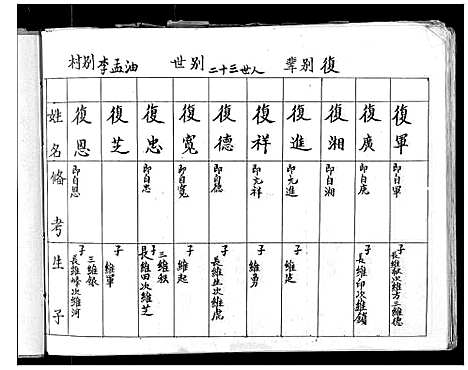 輩别 復
世别 二十三世人
村别 李孟油
姓名 備考 生子
復軍 即自軍 子 長維秋次維方三維德
復廣 即自廣 子 長維印次維鎖
復湘 即自湘
復進 即允進 子 維廷
復祥 即允祥 子 維勇
復德 即自德 子 長維生次維虎
復寬 即自寬 子 維起
復忠 即自忠 子 長維田次維芝三維秋
復芝 子 維軍
復恩 即自恩 子 長維峰次維河三維銀